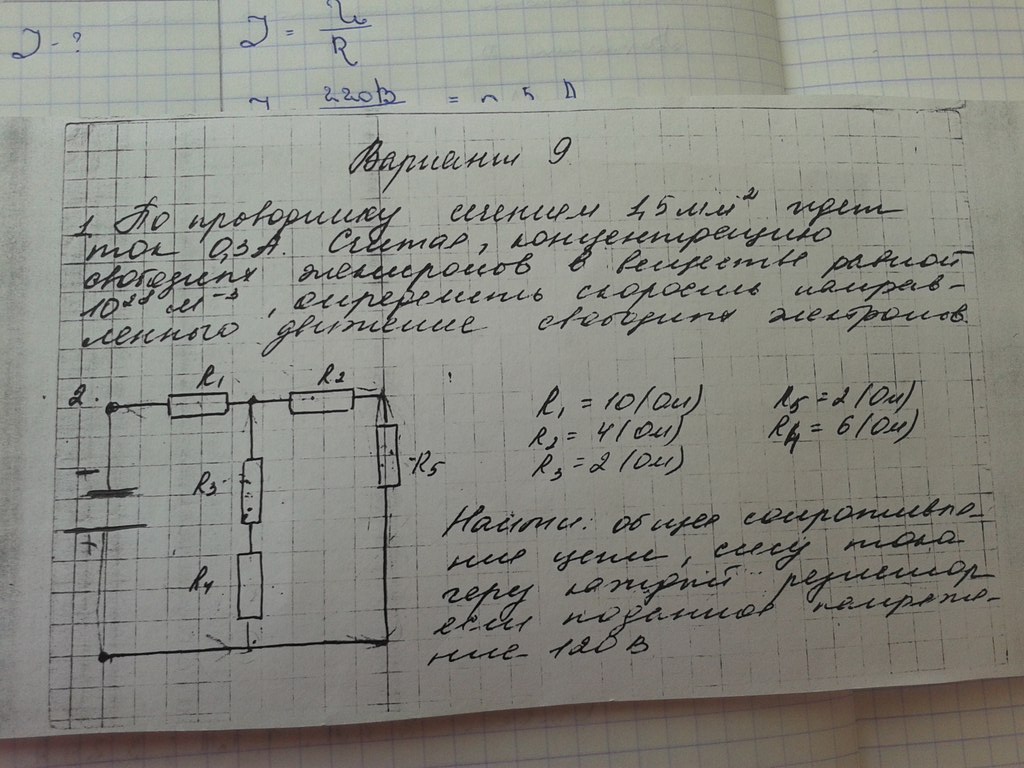 J - ?
J = U / R
220В
Вариант 9
1. По проводнику сечением 1,5 мм² идет
ток 0,3 А. Считая, концентрацию
свободных электронов в веществе равной
10²⁸ м⁻³, определить скорость направ-
ленного движение свободных электронов.
2.
R1
R2
R3
R4
R5
+
R1 = 10 (Ом)
R2 = 4 (Ом)
R3 = 2 (Ом)
R5 = 2 (Ом)
R4 = 6 (Ом)
Найти: общее сопротивле-
ние цепи, силу тока
через каждый резистор
если поданное напряже-
ние 120 В